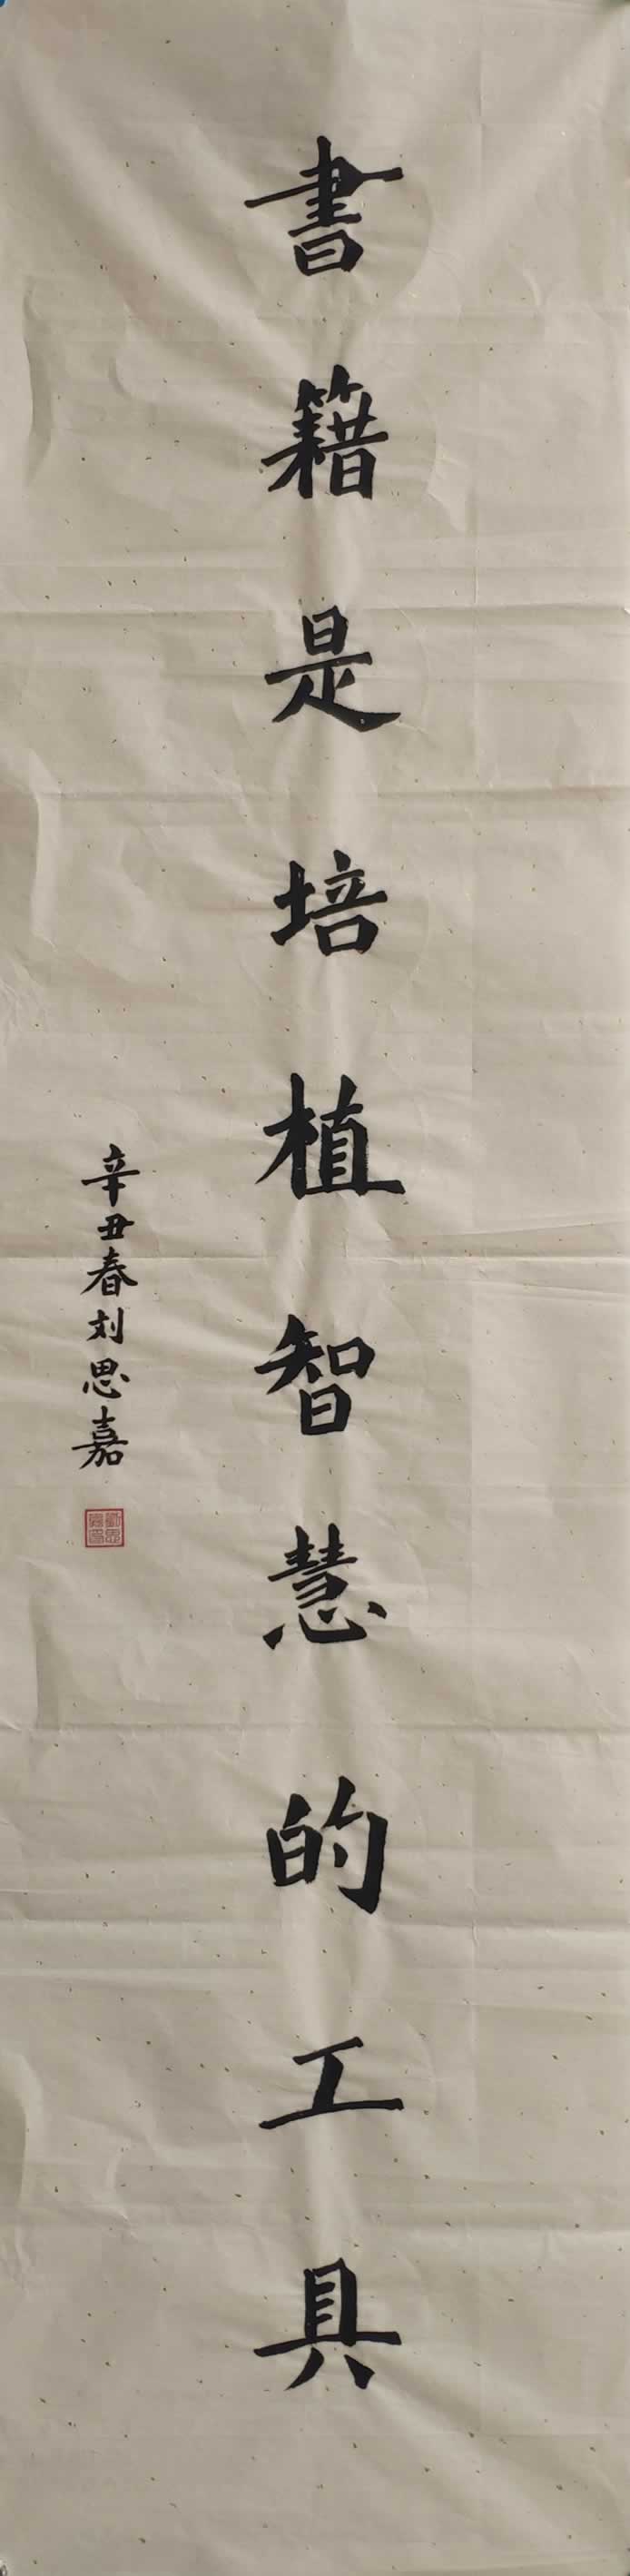 書籍是培植智慧的工具
辛丑春刘思嘉